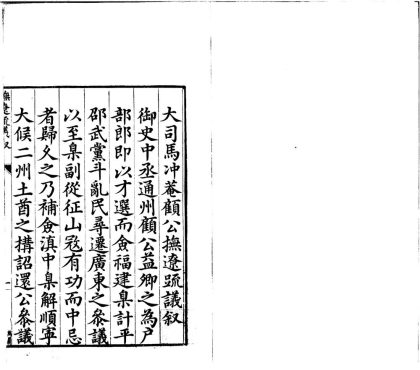 大司馬冲菴顧公撫遼疏議叙
御史中丞通州顧公益卿之為户
部郎即以才選而僉福建臬計平
邵武黨斗亂民尋遷廣東之叅議
以至臬副從征山冦有功而中忌
者歸久之乃補僉滇中臬解順寧
大候二州土酋之搆詔還公叅議
撫遼疏議叙
一